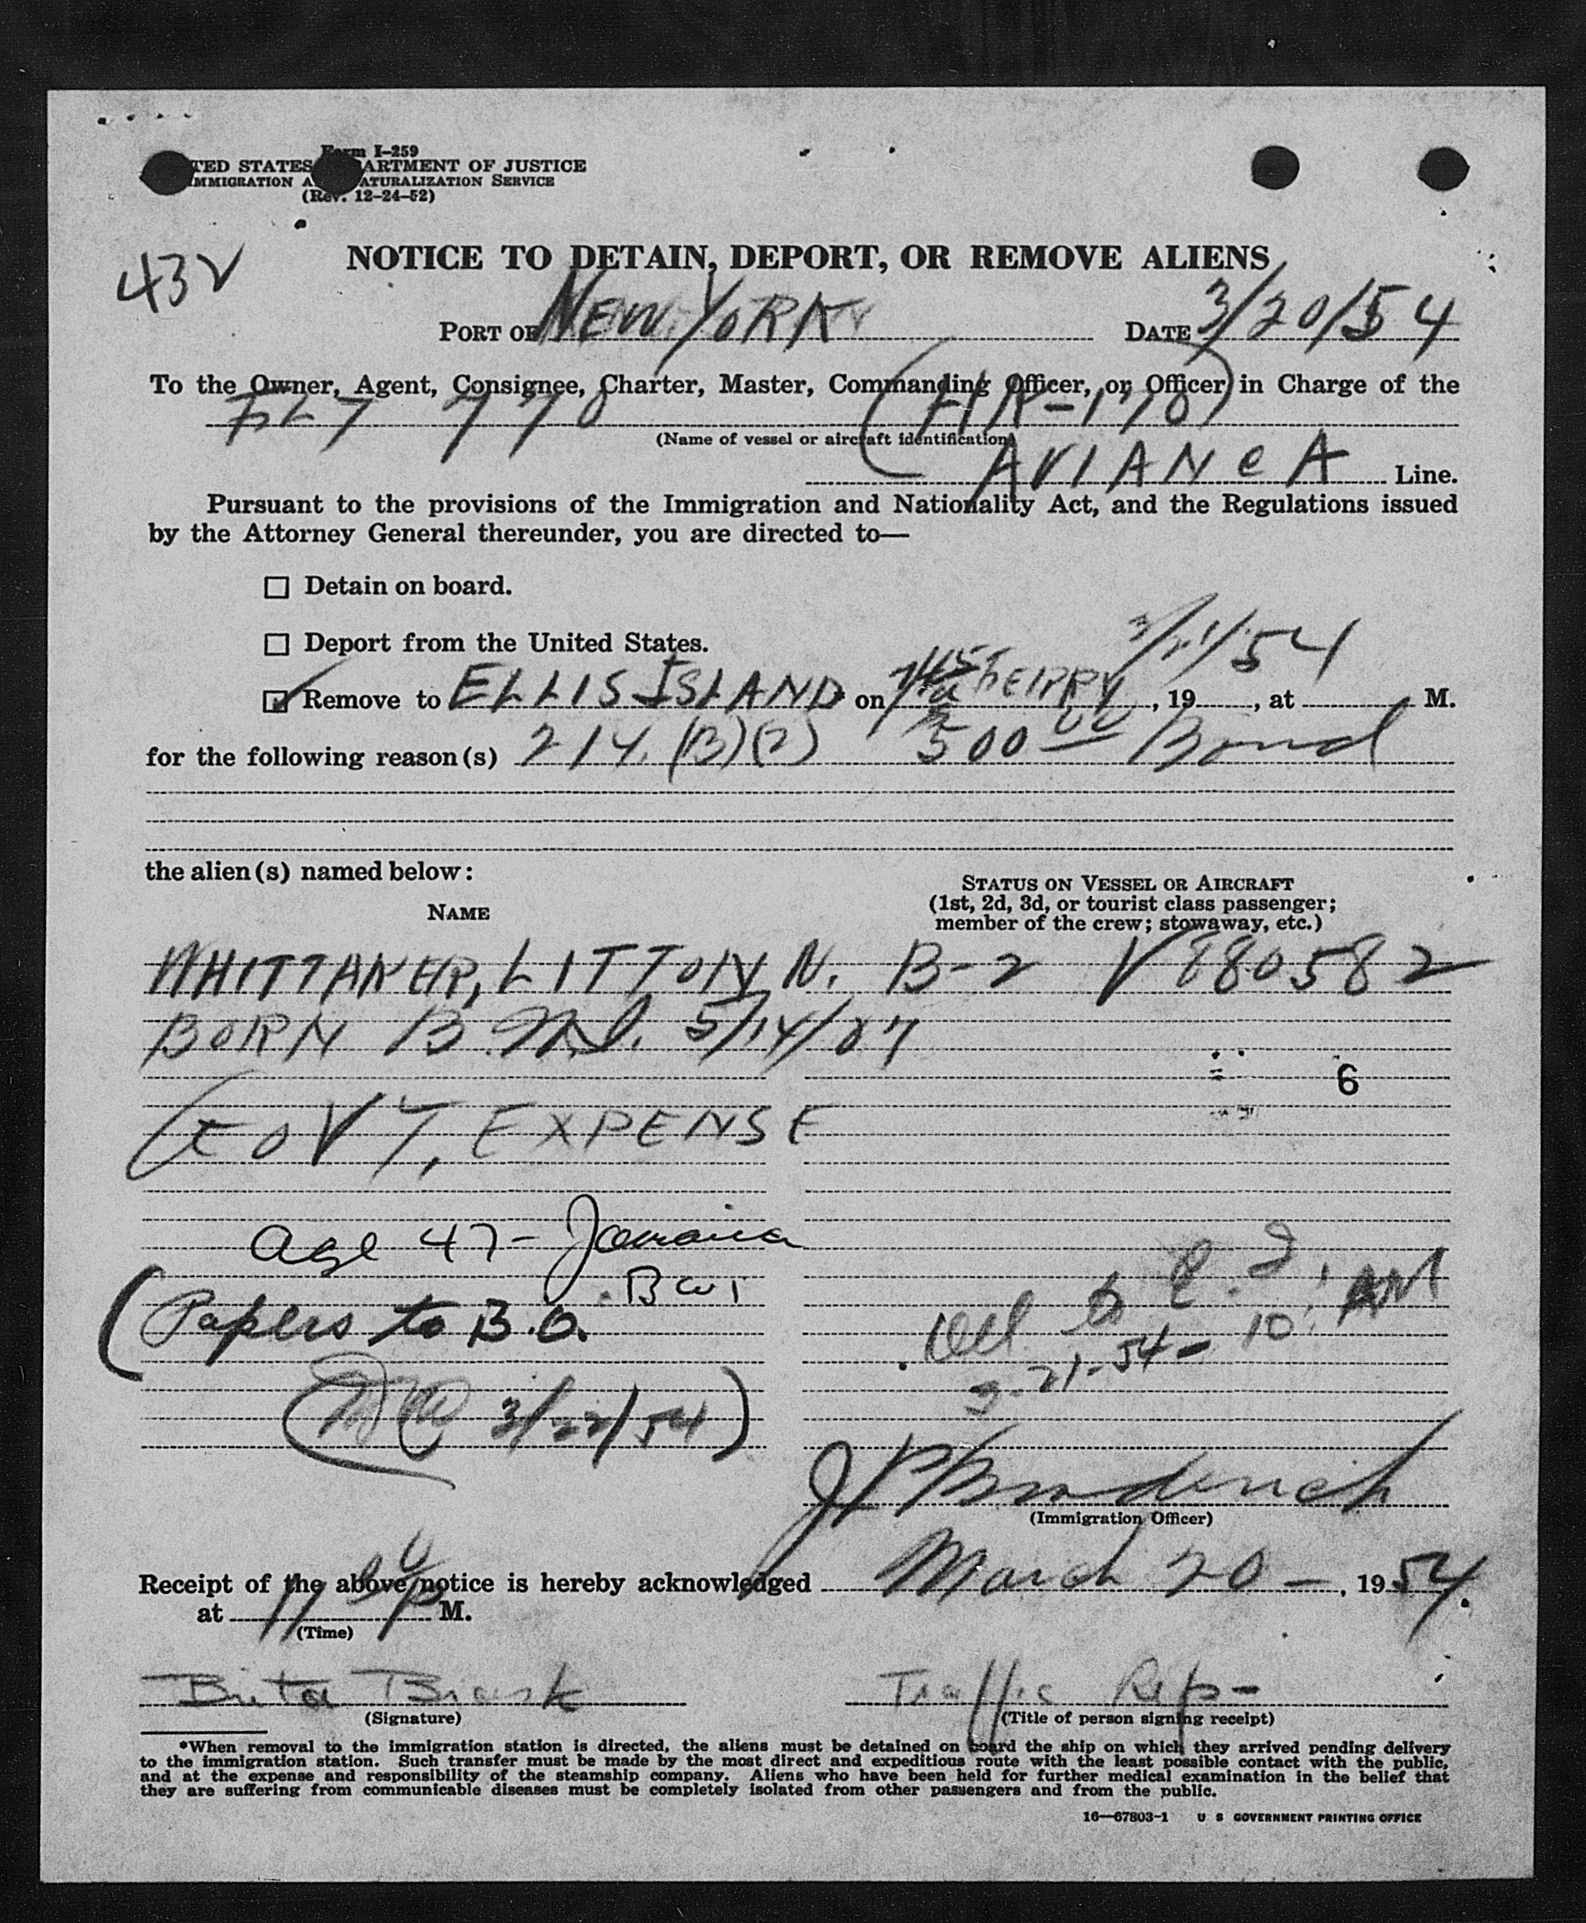 Form I-259
UNITED STATES DEPARTMENT OF JUSTICE
IMMIGRATION AND NATURALIZATION SERVICE
(Rev. 12-24-52)
432
NOTICE TO DETAIN, DEPORT, OR REMOVE ALIENS
PORT OF NEW YORK DATE 3/20/54
To the Owner, Agent, Consignee, Charter, Master, Commanding Officer, or Officer in Charge of the
FLT 770 (HK-170)
(Name of vessel or aircraft identification)
AVIANCA Line.
Pursuant to the provisions of the Immigration and Nationality Act, and the Regulations issued
by the Attorney General thereunder, you are directed to—
☐ Detain on board.
☐ Deport from the United States.
3/21/54
☑ Remove to ELLIS ISLAND on FERRY, 19 , at M.
for the following reason(s) 214.(B)(2) 500 00 Bond
the alien(s) named below:
NAME
STATUS ON VESSEL OR AIRCRAFT
(1st, 2d, 3d, or tourist class passenger;
member of the crew; stowaway, etc.)
WHITTAKER, LITTON N. B-2 V 880582
BORN B.W.I. 5/14/07
6
GOVT, EXPENSE
age 47- Jamaica
BWI
(Papers to B.O.
3/22/54)
Del to E. I.
3-21-54- 10: AM
(Immigration Officer)
Receipt of the above notice is hereby acknowledged March 20 -, 1954.
at 11 P M.
(Time)
Traffic Rep-
(Signature) (Title of person signing receipt)
*When removal to the immigration station is directed, the aliens must be detained on board the ship on which they arrived pending delivery
to the immigration station. Such transfer must be made by the most direct and expeditious route with the least possible contact with the public,
and at the expense and responsibility of the steamship company. Aliens who have been held for further medical examination in the belief that
they are suffering from communicable diseases must be completely isolated from other passengers and from the public.
16—67803-1 U S GOVERNMENT PRINTING OFFICE